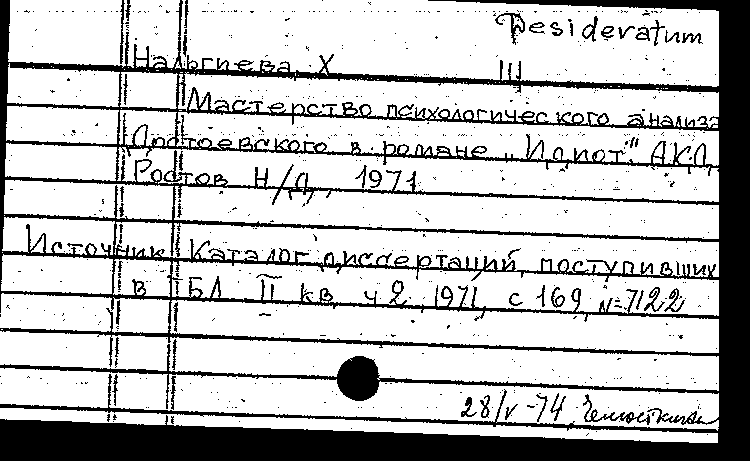 Desideratum
Нальгиева, Х III
Мастерство психологического анализа
Достоевского в романе „Идиот". А.К.Д.
Ростов Н/Д, 1971
Источник: Каталог диссертаций, поступивших
в ГБЛ II кв. ч 2, 1971, с 169, N=7122
28/V-74,